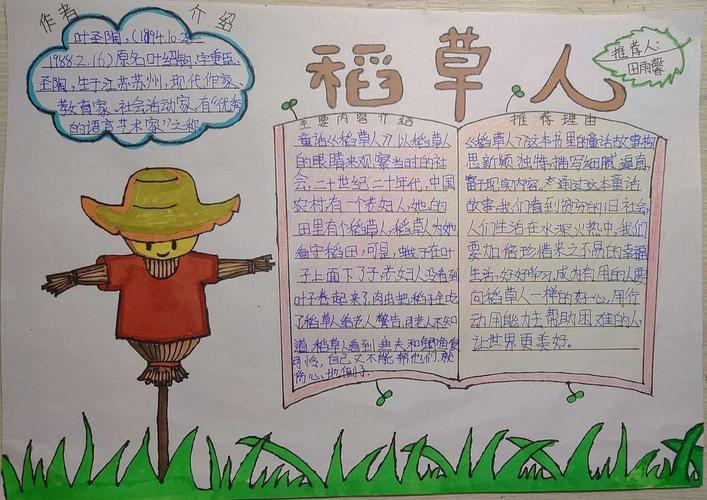 作者介绍
叶圣陶,(1894.10.28—
1988.2.16)原名叶绍钧,字秉臣
圣陶,生于江苏苏州,现代作家
教育家、社会活动家,有“优秀
的语言艺术家”之称
稻草人
推荐人:
田雨馨
主要内容介绍
童话《稻草人》以稻草人
的眼睛来观察当时的社
会,二十世纪二十年代,中国
农村,有一个老妇人,她的
田里有个稻草人,稻草人为她
看守稻田,可是,蛾子在叶
子上面下了子,老妇人没看到
叶子卷起来了,肉虫把稻子全吃
了稻草人给老人警告,老人不知
道,稻草人看到渔夫和鲫鱼
自己又不能帮他们,就
伤心地倒了。
推荐理由
《稻草人》这本书里的童话故事构
思新颖独特,描写细腻逼真,
富于现实内容,通过这本童话
故事,我们看到贫穷的旧社会,
人们生活在水深火热中,我们
要加倍珍惜来之不易的幸福
生活,好好学习,成为有用的人,要
向稻草人一样的热心,用行
动用能力去帮助困难的人
让世界更美好。